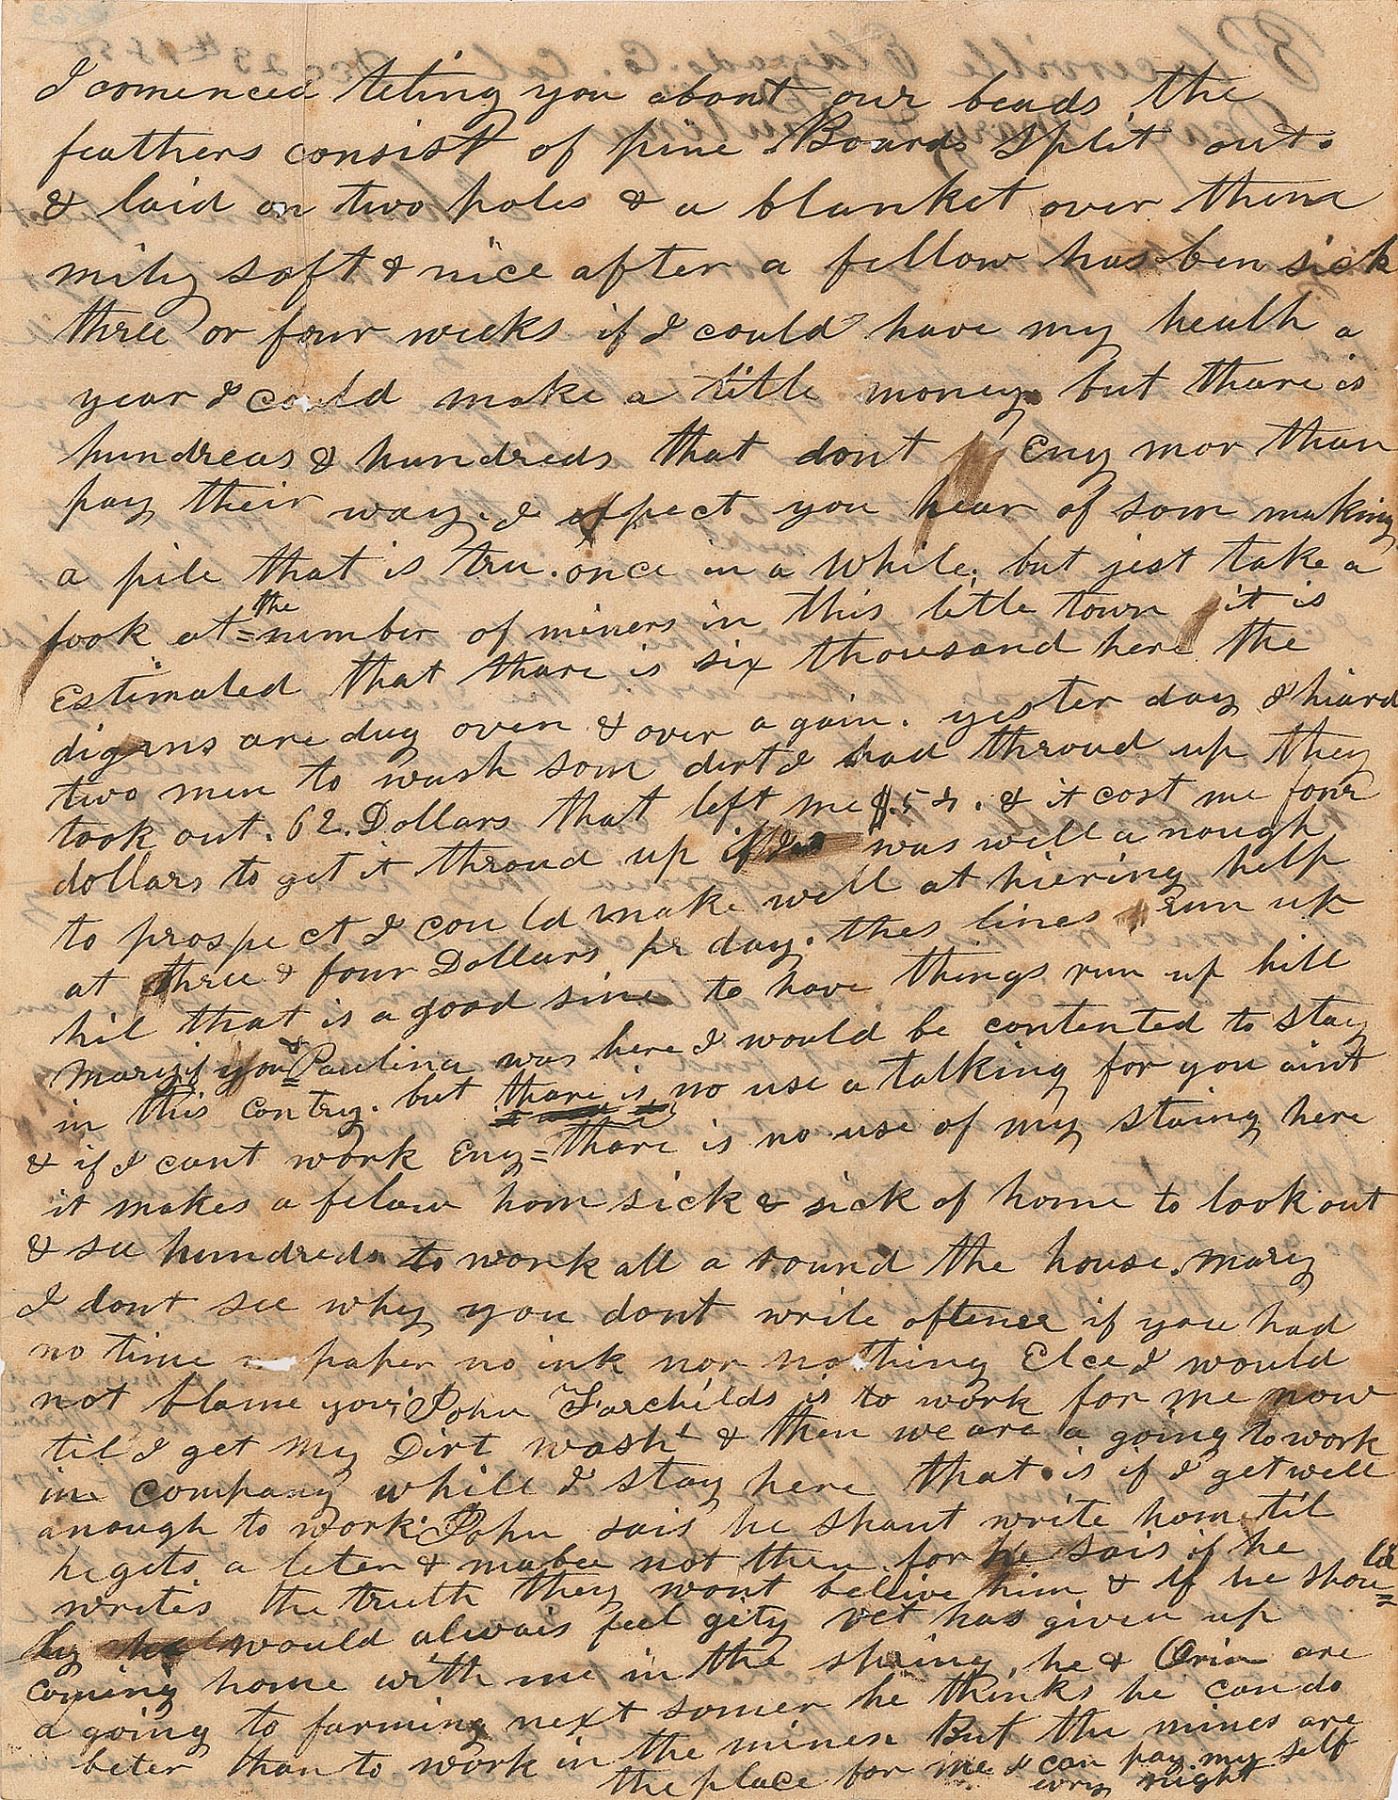 I comenced teling you about our beads the
feathers consist of pine Boards split out.
& laid on two poles & a blanket over them
mity soft & nice after a fellow has ben sick
three or four weeks if I could have my health a
year I could make a little money but thare is
hundreds & hundreds that dont Eny mor than
pay their way. I expect you hear of som making
a pile that is tru. once in a while. but jest take a
look at = the number of miners in this litle town it is
Estimated that thare is six thousand here the
digens are dug over & over again. yester day I hiard
two men to wash som dirt I had throud up they
took out. 62. Dollars that left me $.54. & it cost me four
dollars to get it throud up if I was well a nough
to prospect I could make well at hiering help
at three & four Dollars pr day. thes lines run up
hil that is a good sine to have things run up hill
Mary if you & Paulina was here I would be contented to stay
in this contry. but thare is no use a talking for you aint
& if I cant work Eny = thare is no use of my staing here
it makes a felaw hom sick & sick of home to look out
& see hundreds to work all a round the house. mary
I dont see why you dont write oftener if you had
no time n paper no ink nor nothing Elce I would
not blame you; John Farchilds is to work for me now
til I get my Dirt wash't & then we are a going to work
in company whill I stay here that is if I get well
anough to work. John sais he shant write hom til
he gets a leter & mabee not then. for he sais if he
writes the truth they wont believe him & if he shou=ld
ly he would alwais feel gity vet has given up
coming home with me in the spring, he & Orin are
a going to farming next somer he thinks he can do
beter than to work in the mines. But the mines are
the place for me I can pay my self
evry night